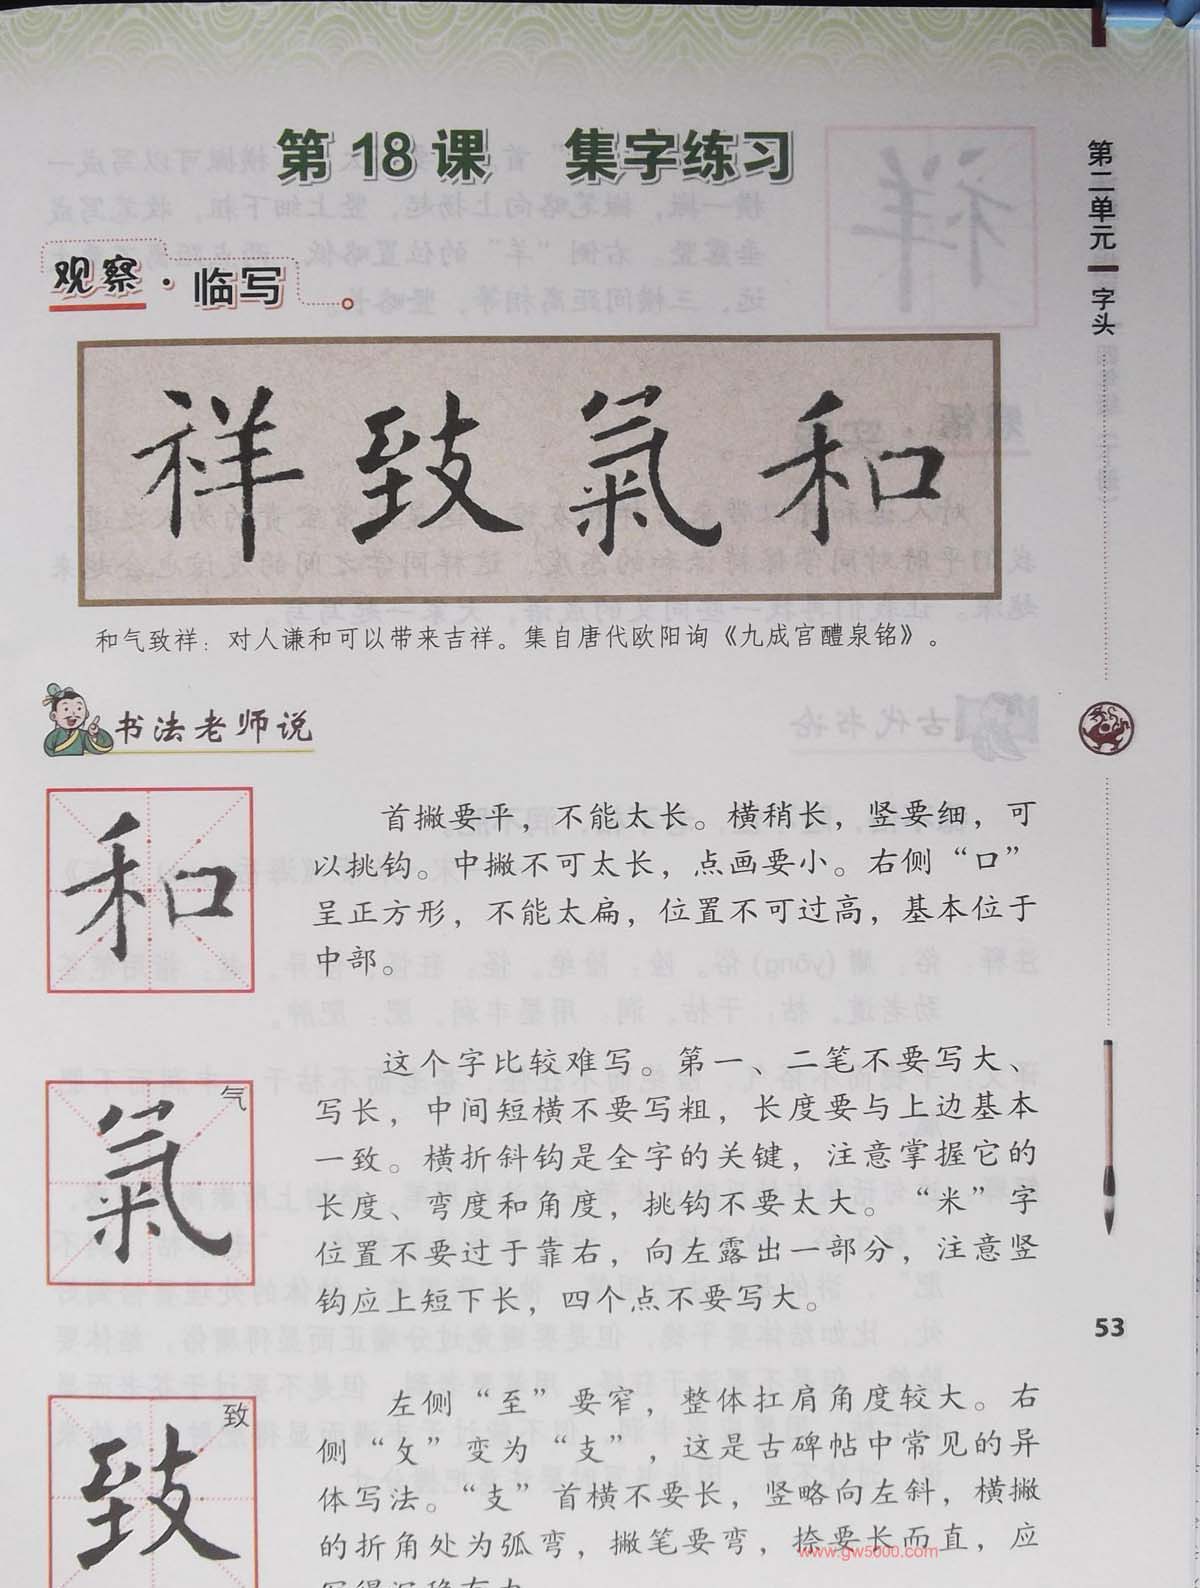 第18课 集字练习
观察·临写
祥致氣和
和气致祥：对人谦和可以带来吉祥。集自唐代欧阳询《九成宫醴泉铭》。
书法老师说
和
首撇要平，不能太长。横稍长，竖要细，可
以挑钩。中撇不可太长，点画要小。右侧“口”
呈正方形，不能太扁，位置不可过高，基本位于
中部。
气
氣
这个字比较难写。第一、二笔不要写大、
写长，中间短横不要写粗，长度要与上边基本
一致。横折斜钩是全字的关键，注意掌握它的
长度、弯度和角度，挑钩不要太大。“米”字
位置不要过于靠右，向左露出一部分，注意竖
钩应上短下长，四个点不要写大。
致
致
左侧“至”要窄，整体扛肩角度较大。右
侧“攵”变为“支”，这是古碑帖中常见的异
体写法。“支”首横不要长，竖略向左斜，横撇
的折角处为弧弯，撇笔要弯，捺要长而直，应
第二单元 字头
53
www.gw5000.com